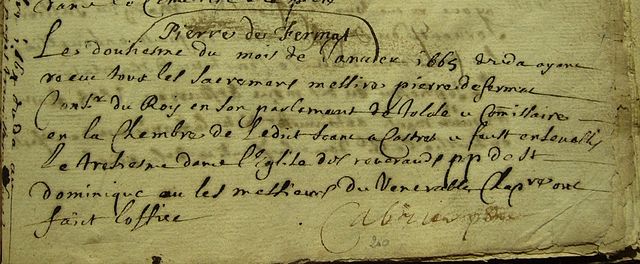 dans le Cimetiere
Pierre de Fermat
Les dousiesme du mois de Janvier 1665 deceda ayant
receu touts les sacremens messire pierre defermat
Cons.r du Roy en son parlament de Tolose e Comissaire
en la Chambre de ledict seant a Castres e fust ensevelly
le tresiesme dans l'Eglise des reverands pp de St
dominique ou les messieurs du Venerable Chap.re ont
faict loffice
210